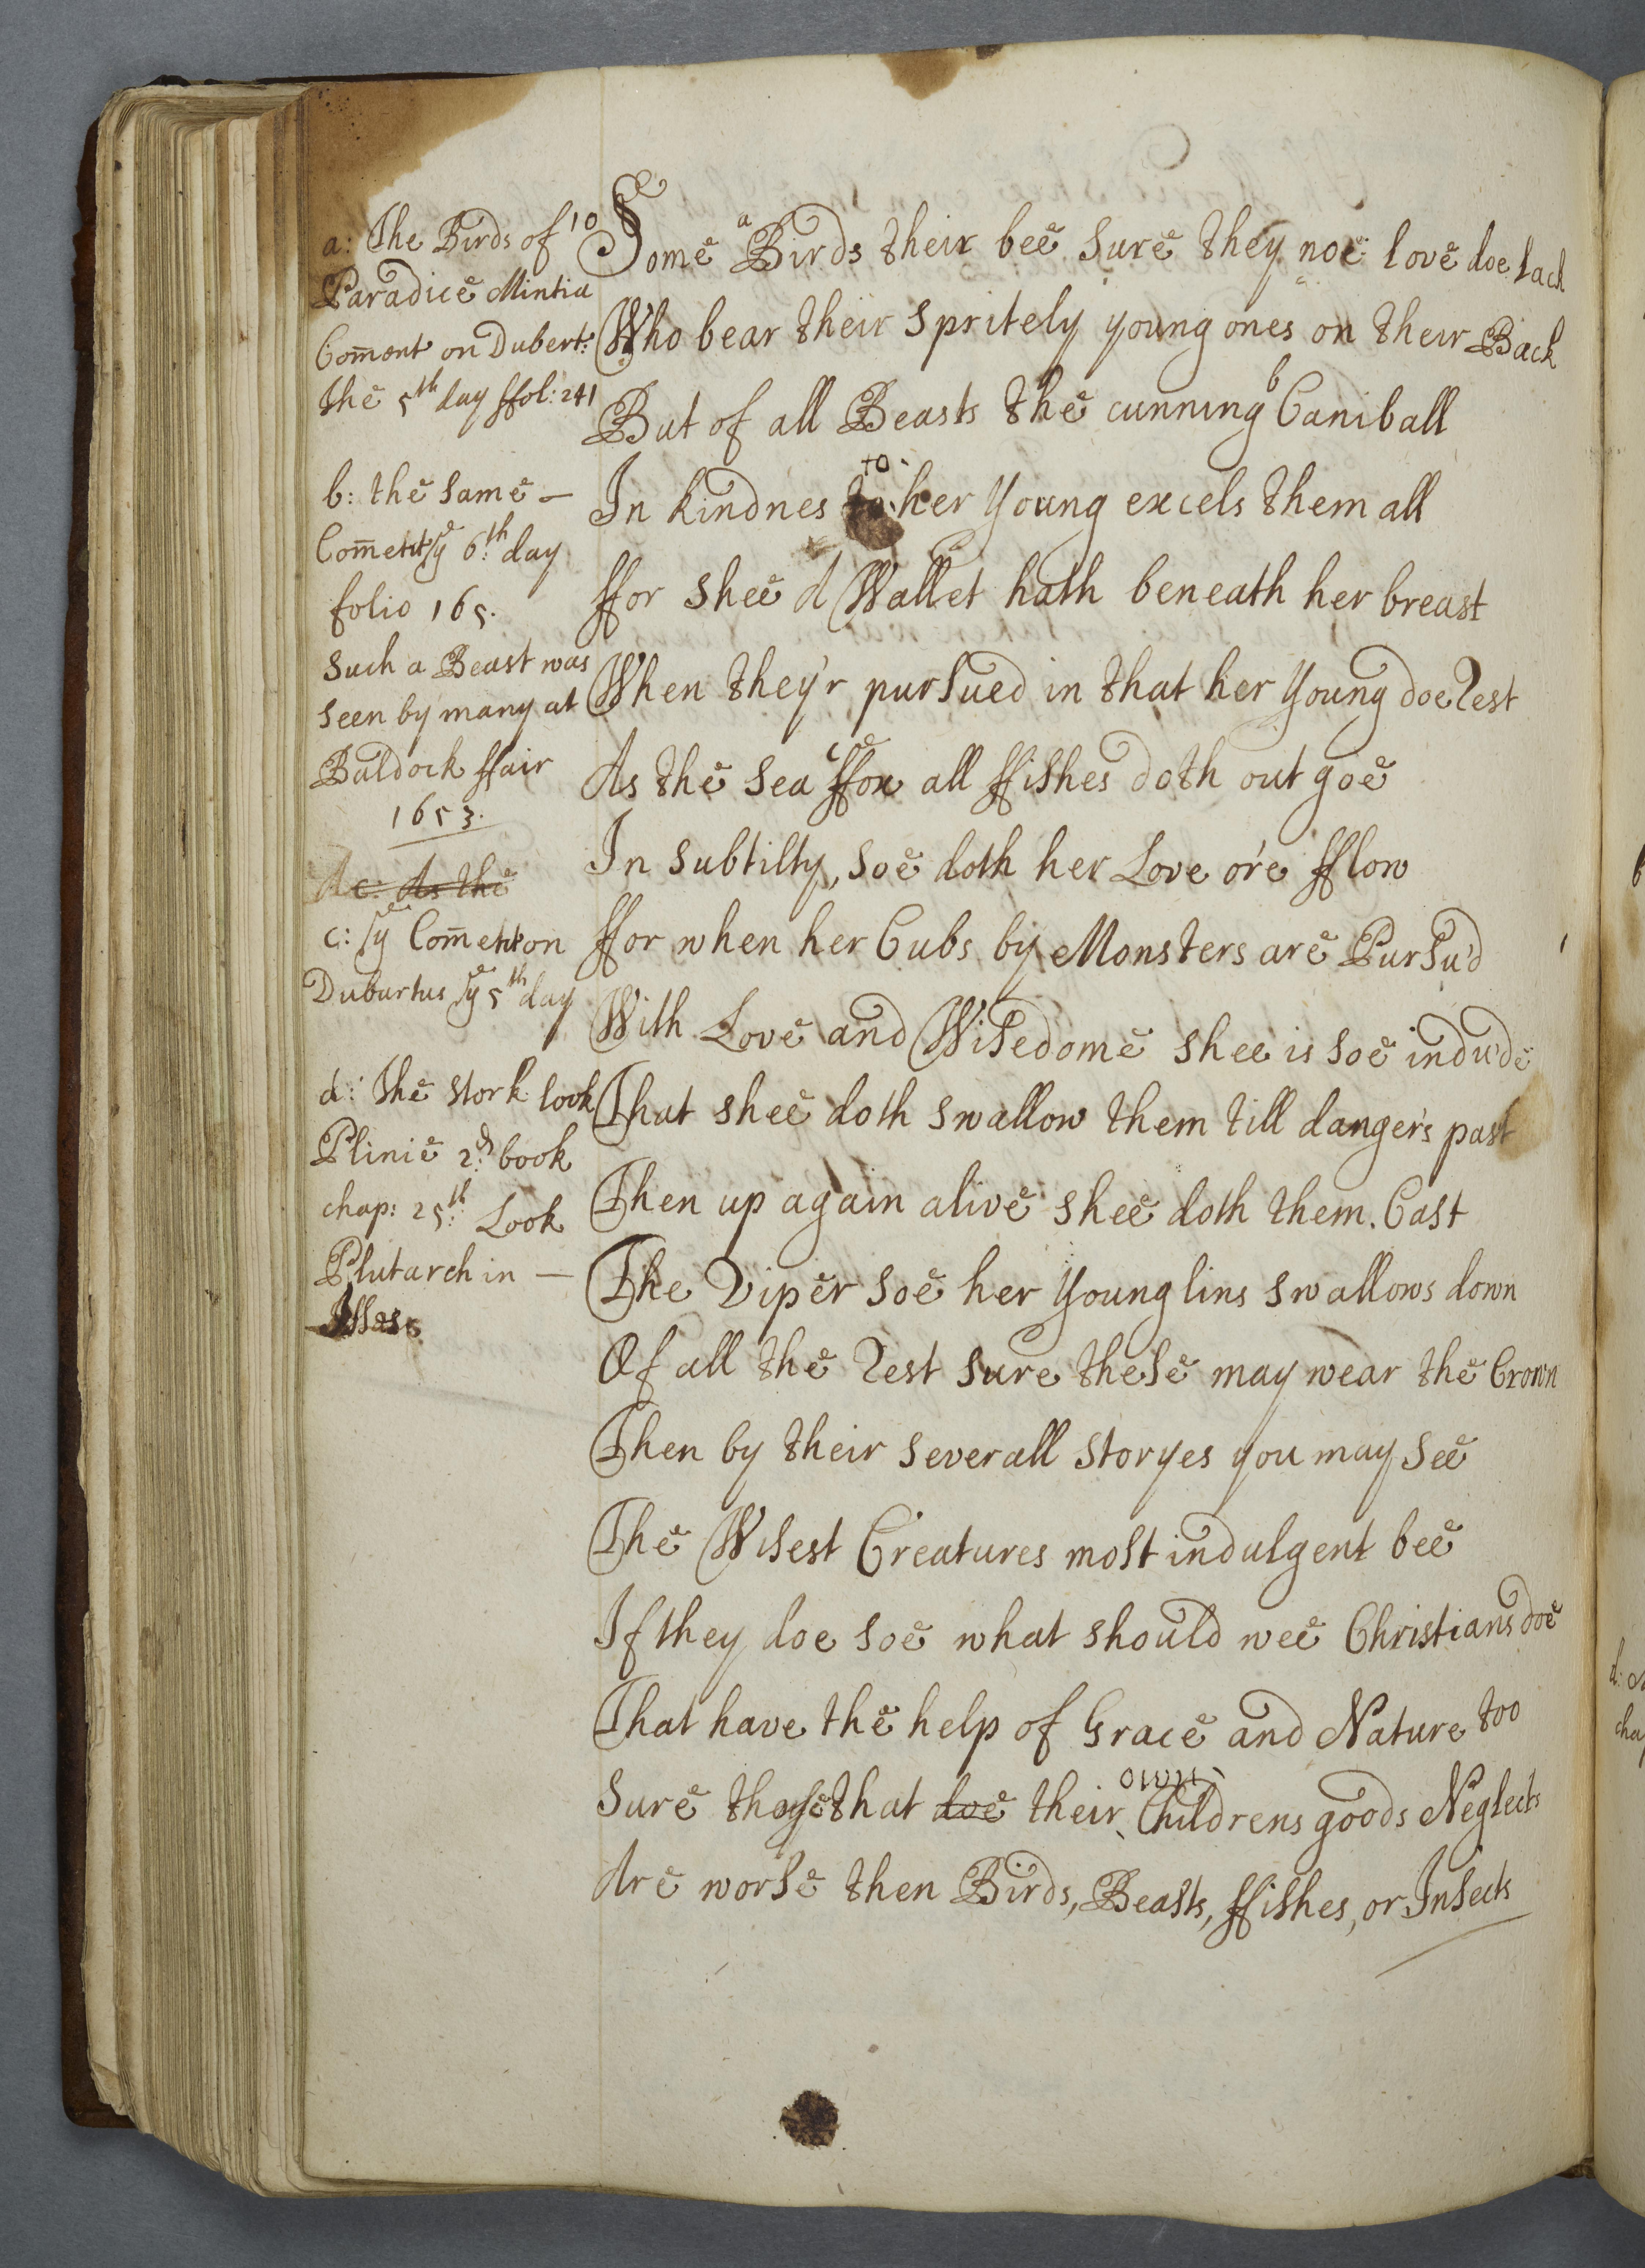 a: The Birds of
Paradice Mintia
Com̄ent on Dubert:
the 5th day ffol: 241
b: the same —
Com̄ent ye 6th day
folio 165.
Such a Beast was
seen by many at
Baldock ffair
1653.
c: As the
c: ye Com̄ent on
Dubartus ye 5th day
d: the stork look
Plinie 2d book
chap: 25th: Look
Plutarch in —
10 Some a Birds their bee sure they noe love doe lack
Who bear their Spritely young ones on their Back
But of all Beasts the cunning b Caniball
In kindnes to her Young excels them all
ffor shee A Wallet hath beneath her breast
When they'r pursued in that her Young doe Rest
As the Sea c ffox all ffishes doth out goe
In subtilty, soe doth her Love o're fflow
ffor when her Cubs by Monsters are Pursu'd
With Love and Wisedome shee is soe indu'de
That shee doth swallow them till danger's past
Then up again alive shee doth them Cast
The Viper soe her Younglins swallows down
Of all the Rest sure these may wear the Crown
Then by their severall storyes you may see
The Wisest Creatures most indulgent bee
If they doe soe what should wee Christians doe
That have the help of Grace and Nature too
Sure those that doe their own Childrens goods Neglects
Are worse then Birds, Beasts, ffishes, or Insects